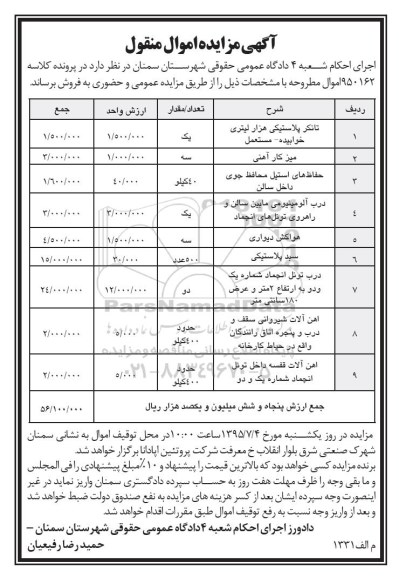 آگهی مزایده اموال منقول
اجرای احکام شــعبه ۴ دادگاه عمومی حقوقی شهرســتان سمنان در نظر دارد در پرونده کلاسه
۹۵۰۱۶۲اموال مطروحه با مشخصات ذیل را از طریق مزایده عمومی و حضوری به فروش برساند.
ردیف شرح تعداد/مقدار ارزش واحد جمع
۱ تانکر پلاستیکی هزار لیتری خوابیده- مستعمل یک ۱/۵۰۰/۰۰۰ ۱/۵۰۰/۰۰۰
۲ میز کار آهنی سه ۱/۰۰۰/۰۰۰ ۳/۰۰۰/۰۰۰
۳ حفاظ‌های استیل محافظ جوی داخل سالن ۴۰کیلو ۴۰/۰۰۰ ۱/۶۰۰/۰۰۰
۴ درب آلومینیومی مابین سالن و راهروی تونل‌های انجماد یک ۳/۰۰۰/۰۰۰ ۳/۰۰۰/۰۰۰
۵ هواکش دیواری سه ۱/۵۰۰/۰۰۰ ۴/۵۰۰/۰۰۰
۶ سبد پلاستیکی ۵۰۰عدد ۳۰/۰۰۰ ۱۵/۰۰۰/۰۰۰
۷ درب تونل انجماد شماره یک ودو به ارتفاع ۲متر و عرض ۱۸۰سانتی متر دو ۱۲/۰۰۰/۰۰۰ ۲۴/۰۰۰/۰۰۰
۸ اهن آلات شیروانی سقف و درب و پنجره اتاق رانندگان واقع در حیاط کارخانه حدود ۴۰۰کیلو ۵/۰۰۰ ۲/۰۰۰/۰۰۰
۹ اهن آلات قفسه داخل تونل انجماد شماره یک و دو حدود ۴۰۰کیلو ۵/۰۰۰ ۲/۰۰۰/۰۰۰
جمع ارزش پنجاه و شش میلیون و یکصد هزار ریال ۵۶/۱۰۰/۰۰۰
مزایده در روز یکشــنبه مورخ ۱۳۹۵/۷/۴ساعت ۱۰:۰۰در محل توقیف اموال به نشانی سمنان
شهرک صنعتی شرق بلوار انقلاب خ معرفت شرکت پروتئین آپادانا برگزار خواهد شد.
برنده مزایده کسی خواهد بود که بالاترین قیمت را پیشنهاد و ۱۰٪مبلغ پیشنهادی را فی المجلس
و ما بقی وجه را ظرف مهلت هفت روز به حســاب سپرده دادگستری سمنان واریز نماید در غیر
اینصورت وجه سپرده ایشان بعد از کسر هزینه های مزایده به نفع صندوق دولت ضبط خواهد شد
و بعد از واریز وجه نسبت به رفع توقیف اموال طبق مقررات اقدام خواهد شد.
دادورز اجرای احکام شعبه ۴دادگاه عمومی حقوقی شهرستان سمنان –
م الف۱۳۳۱ حمید رضا رفیعیان
ParsNamadData
۰۲۱-۸۸۳۴۹۶۷۰-۵